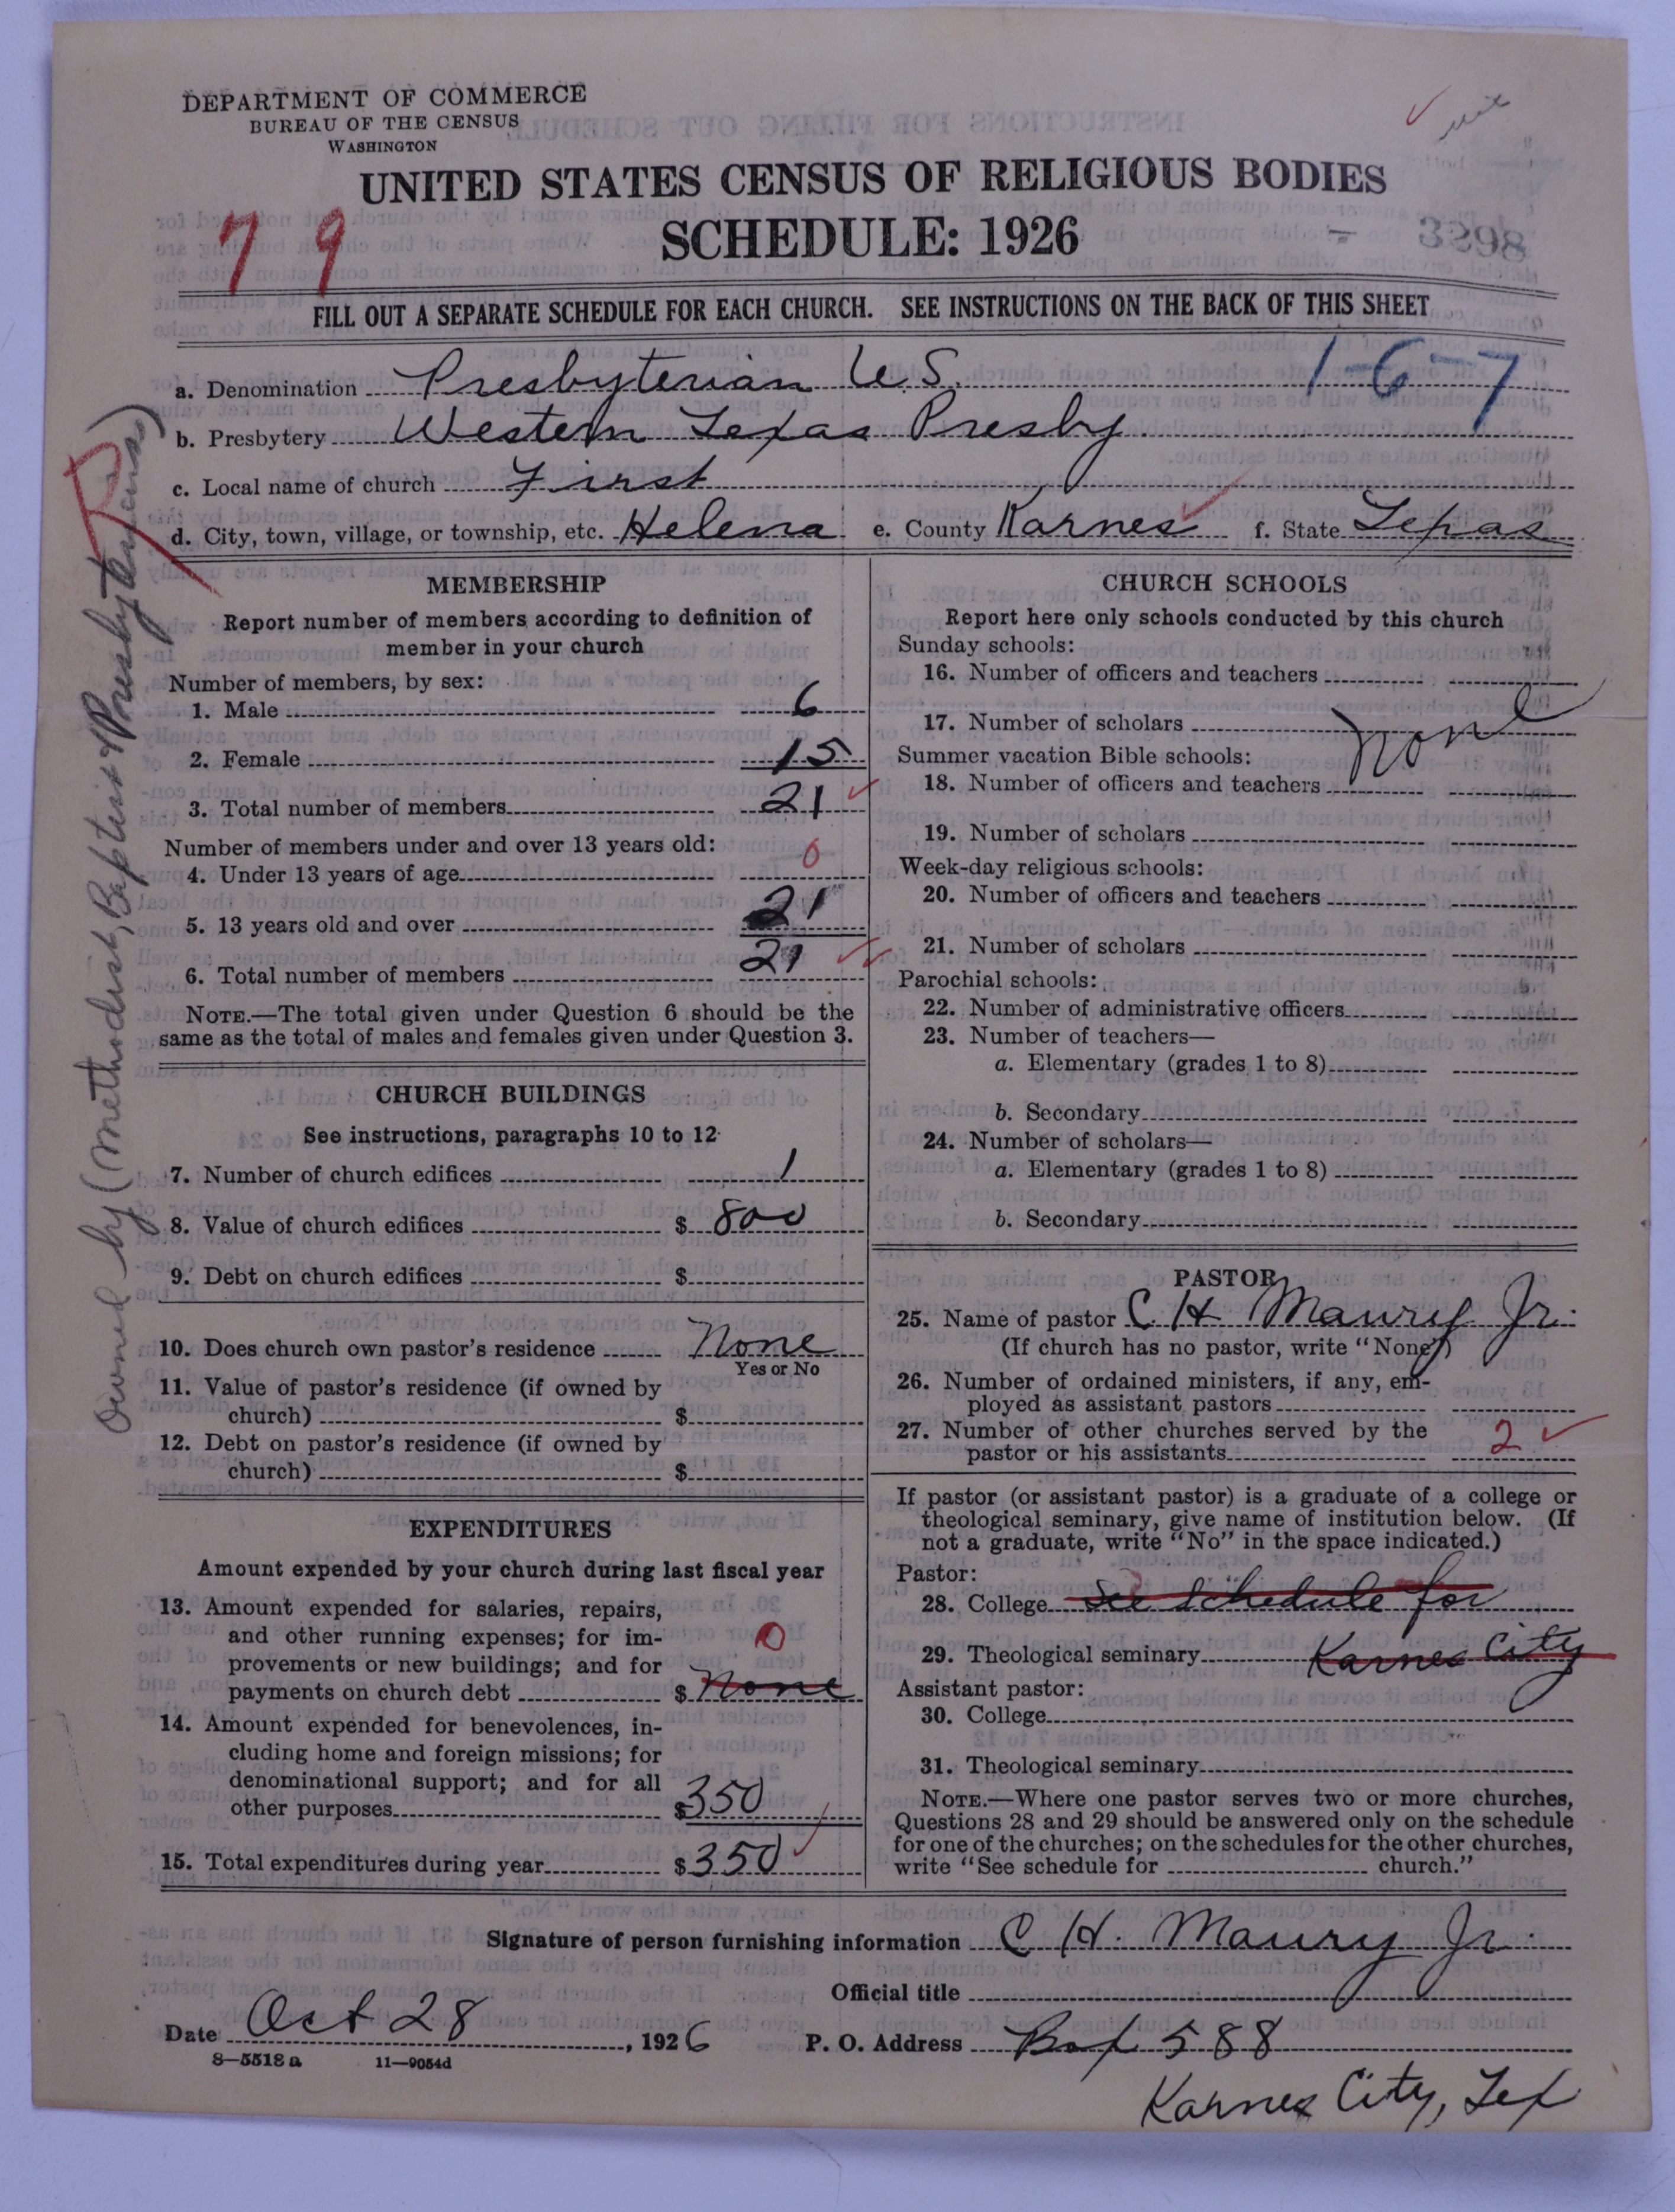 DEPARTMENT OF COMMERCE
BUREAU OF THE CENSUS
WASHINGTON
UNITED STATES CENSUS OF RELIGIOUS BODIES
SCHEDULE: 1926
79
3298
FILL OUT A SEPARATE SCHEDULE FOR EACH CHURCH. SEE INSTRUCTIONS ON THE BACK OF THIS SHEET
a. Denomination Presbyterian U.S. 1-6-7
b. Presbytery Western Texas Presby
c. Local name of church First
d. City, town, village, or township, etc. Helena e. County Karnes f. State Texas
R
Owned by (Methodist, Baptist & Presbyterians)
MEMBERSHIP
Report number of members according to definition of
member in your church
Number of members, by sex:
1. Male 6
2. Female 15
3. Total number of members 21
Number of members under and over 13 years old:
4. Under 13 years of age 0
5. 13 years old and over 21
6. Total number of members 21
NOTE.—The total given under Question 6 should be the
same as the total of males and females given under Question 3.
CHURCH BUILDINGS
See instructions, paragraphs 10 to 12
7. Number of church edifices 1
8. Value of church edifices $ 800
9. Debt on church edifices $
10. Does church own pastor's residence None
Yes or No
11. Value of pastor's residence (if owned by
church) $
12. Debt on pastor's residence (if owned by
church) $
EXPENDITURES
Amount expended by your church during last fiscal year
13. Amount expended for salaries, repairs,
and other running expenses; for im-
provements or new buildings; and for
payments on church debt $ None 0
14. Amount expended for benevolences, in-
cluding home and foreign missions; for
denominational support; and for all
other purposes $ 350
15. Total expenditures during year $ 350
CHURCH SCHOOLS
Report here only schools conducted by this church
Sunday schools:
16. Number of officers and teachers
17. Number of scholars none
Summer vacation Bible schools:
18. Number of officers and teachers
19. Number of scholars
Week-day religious schools:
20. Number of officers and teachers
21. Number of scholars
Parochial schools:
22. Number of administrative officers
23. Number of teachers—
a. Elementary (grades 1 to 8)
b. Secondary
24. Number of scholars—
a. Elementary (grades 1 to 8)
b. Secondary
PASTOR
25. Name of pastor C H Maury Jr.
(If church has no pastor, write "None")
26. Number of ordained ministers, if any, em-
ployed as assistant pastors
27. Number of other churches served by the
pastor or his assistants 2
If pastor (or assistant pastor) is a graduate of a college or
theological seminary, give name of institution below. (If
not a graduate, write "No" in the space indicated.)
Pastor:
28. College See Schedule for
29. Theological seminary Karnes City
Assistant pastor:
30. College
31. Theological seminary
NOTE.—Where one pastor serves two or more churches,
Questions 28 and 29 should be answered only on the schedule
for one of the churches; on the schedules for the other churches,
write "See schedule for church."
Signature of person furnishing information C H. Maury Jr.
Official title
Date Oct 28, 1926 P. O. Address Box 588
8—5518 a 11—9054d
Karnes City, Tex